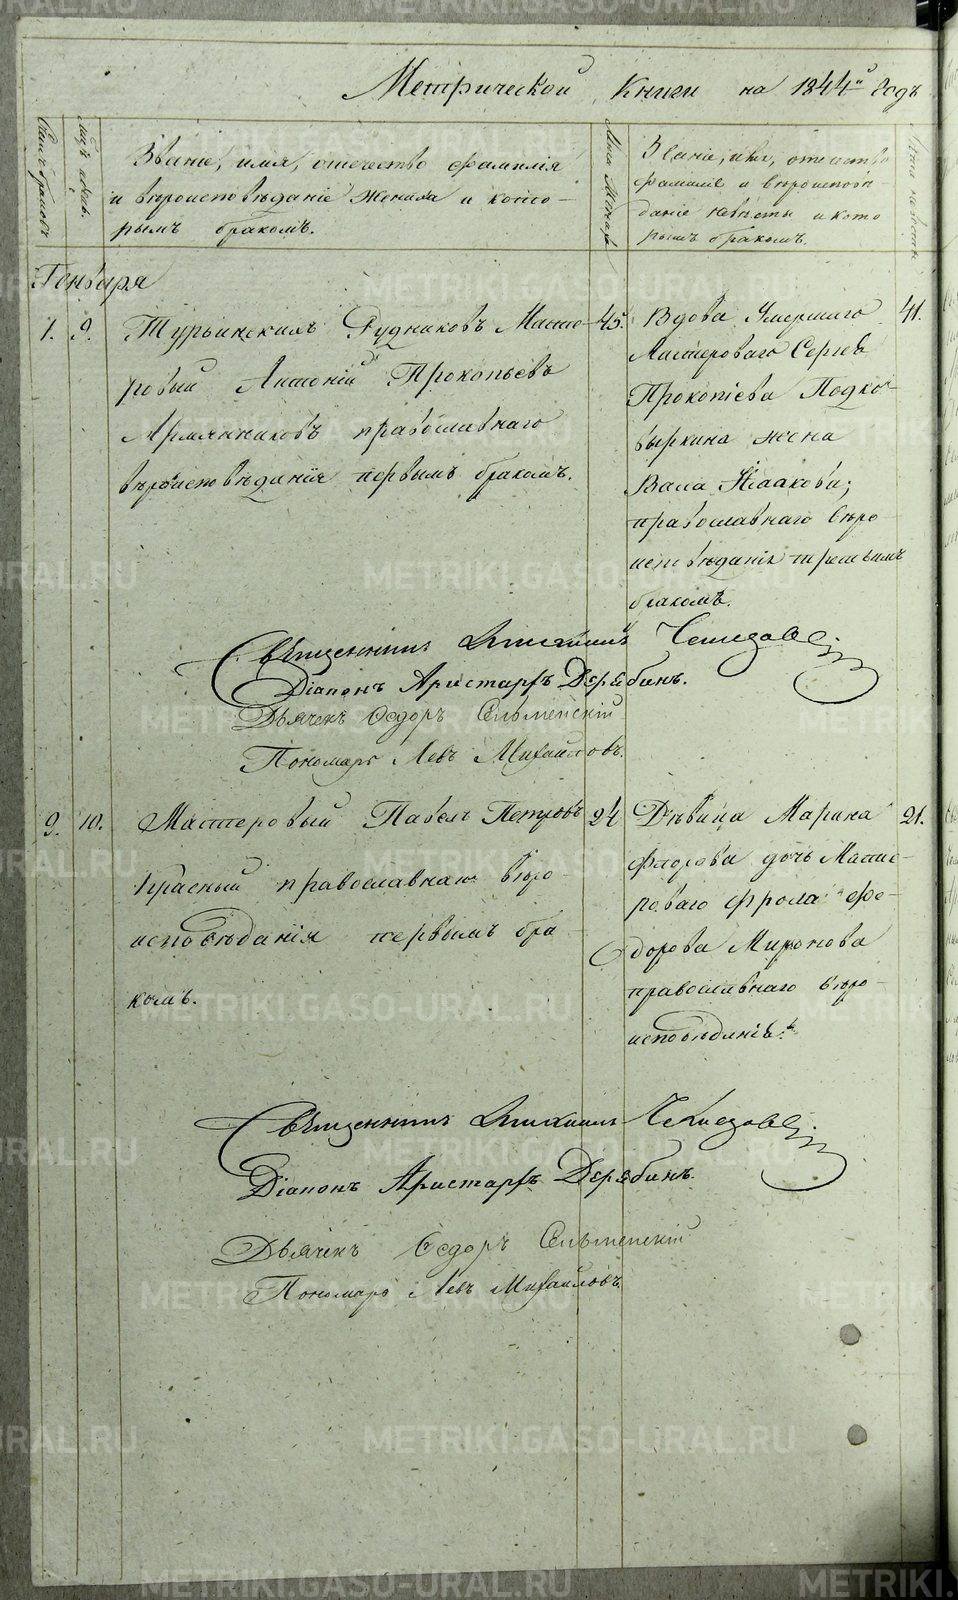 Метрической Книги на 1844й Годъ
Званіе, имя, отечество фамилія
и вѣроисповѣданіе Жениха и кото-
рымъ бракомъ.
Званіе, имя, отечество
фамиліе и вѣроисповѣ-
даніе невѣсты и кото
рымъ бракомъ.
Генваря
1. 9. Турьинскихъ Рудниковъ Масте-
ровый Антоній Прокопьевъ
Армянниковъ православнаго
вѣроисповѣданія первымъ бракомъ.
45.
Вдова Умершаго
Мастероваго Сергея
Прокопіева Подко-
выркина жена
Исаакова;
православнаго вѣро-
исповѣданія третьимъ
бракомъ.
41.
Священникъ
Діаконъ Аристархъ Дерябинъ.
Дьячекъ Ѳедоръ
Пономарь Левъ Михайловъ.
2. 10. Мастеровый Павелъ Петровъ
Красный православнаго вѣро-
исповѣданія первымъ бра
комъ.
24
Дѣвица Марина
Флорова дочь Масте-
роваго Фрола Фе-
дорова Миронова
православнаго вѣро-
исповѣданія.
21.
Священникъ
Діаконъ Аристархъ Дерябинъ.
Дьячекъ Ѳедоръ
Пономарь Левъ Михайловъ
METRIKI.GASO-URAL.RU